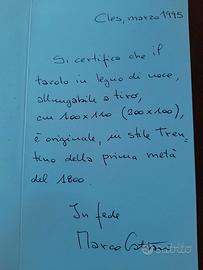 Cles, marzo 1995
Si certifica che il
tavolo in legno di noce,
allungabile a tiro,
cm 100x110 (200x100),
è originale, in stile Tren-
tino della prima metà
del 1800.
In fede
Marco
subito